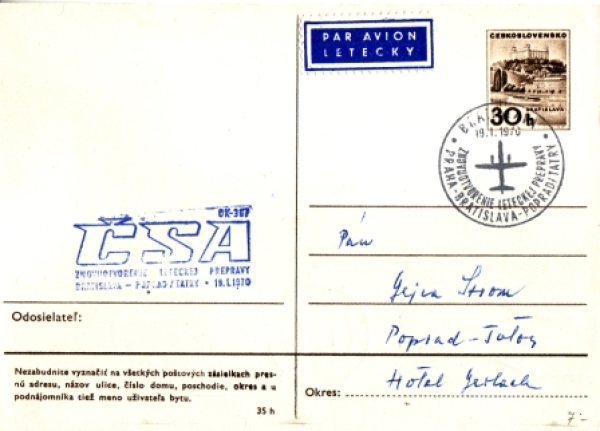 PAR AVION
LETECKY
ČESKOSLOVENSKO
BRATISLAVA
30 h
19.1.1970
ZNOVUOTVORENIE LETECKEJ PREPRAVY
PRAHA-BRATISLAVA-POPRAD/TATRY
OK-367
ČSA
ZNOVUOTVORENIE LETECKEJ PREPRAVY
BRATISLAVA - POPRAD/TATRY • 19.1.1970
Odosielateľ:
Nezabudnite vyznačiť na všetkých poštových zásielkach pres-
nú adresu, názov ulice, číslo domu, poschodie, okres a u
podnájomníka tiež meno užívateľa bytu.
35 h
Pán
Gejza
Poprad-Tatry
Hotel Gerlach
Okres:
7.-